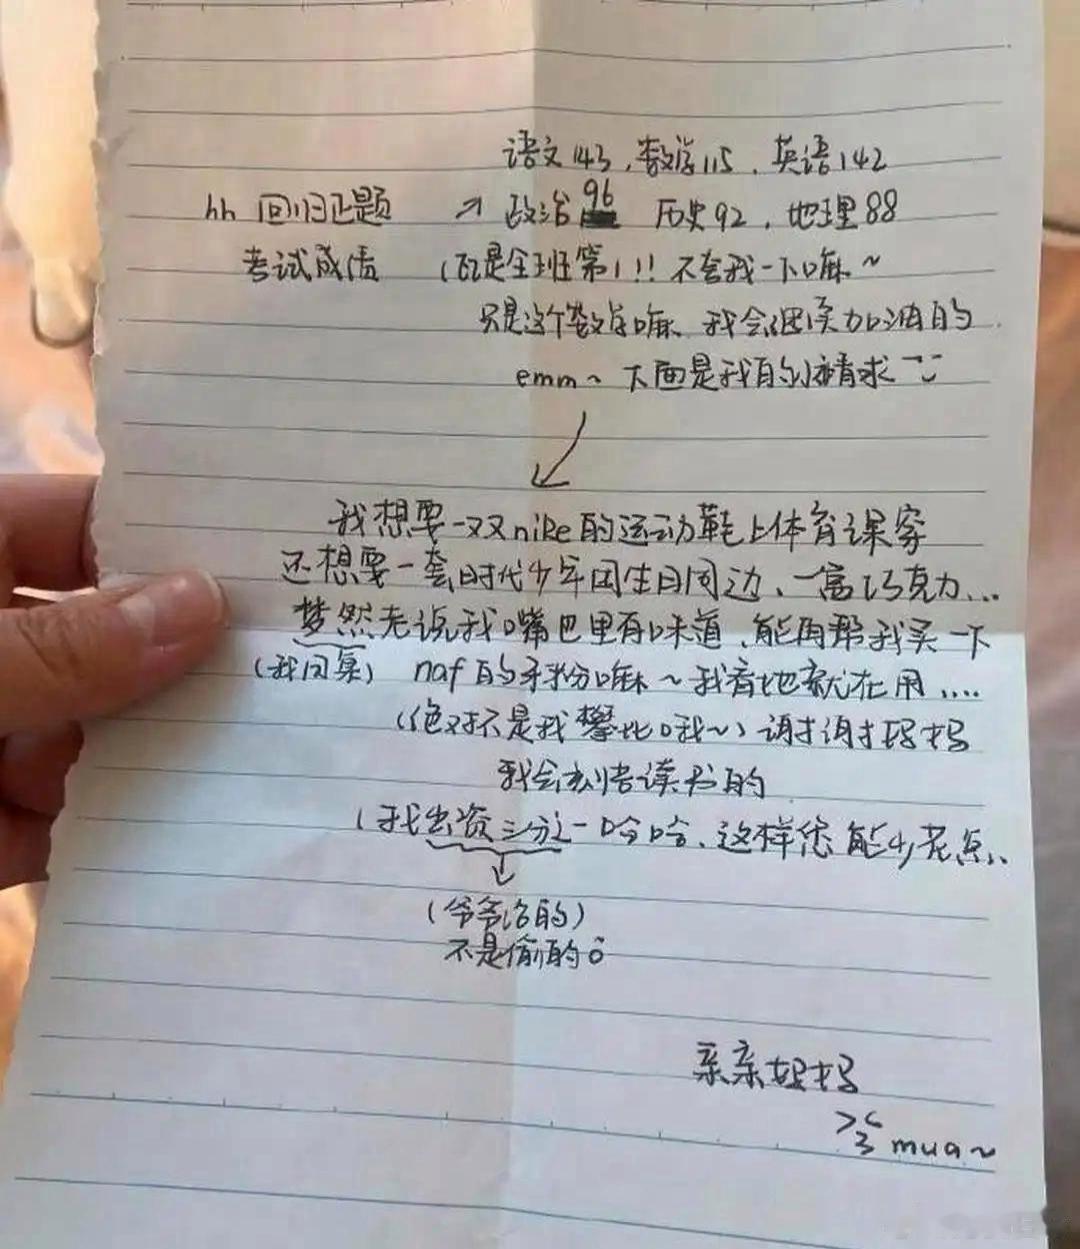 语文143，数学115，英语142
hh 回归正题 ↗ 政治96 历史92，地理88
考试成绩 (瓦是全班第1!! 不夸我一下嘛~
只是这个数学嘛、我会继续加油的
emm~ 下面是我的小请求
我想要一双nike的运动鞋上体育课穿
还想要一套时代少年团生日周边、一盒巧克力...
梦然老说我嘴巴里有味道，能再帮我买一下
(我同桌) naf的牙粉嘛~我看她就在用....
(绝对不是我攀比哦~) 谢谢妈妈
我会刻苦读书的
(我出资三分之一哈哈、这样您能少花点..
(爷爷给的)
不是偷的ō
亲亲妈妈
>3< mua~